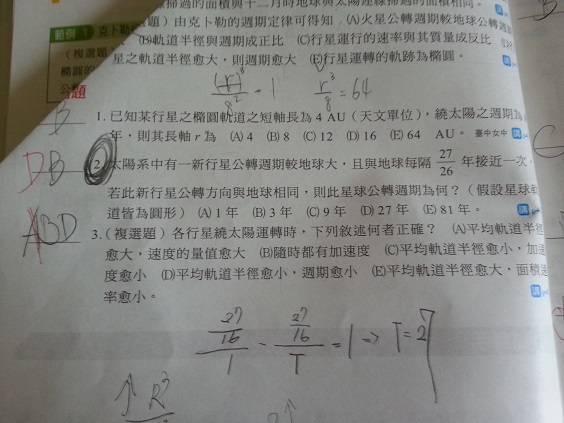 線掃過的面積與十二月時地球與太陽連線掃過的面積相同。
範例 1 克卜勒
題）由克卜勒的週期定律可得知 (A)火星公轉週期較地球公轉週
（複選題） (B)軌道半徑與週期成正比 (C)行星運行的速率與其質量成反比
橢圓的 星之軌道半徑愈大，則週期愈大 (E)行星運轉的軌跡為橢圓。
題
(r)³/8² = 1 r³/8 = 64
B 1. 已知某行星之橢圓軌道之短軸長為 4 AU（天文單位），繞太陽之週期為
年，則其長軸 r 為 (A) 4 (B) 8 (C) 12 (D) 16 (E) 64 AU。 臺中女中
D B 2. 太陽系中有一新行星公轉週期較地球大，且與地球每隔 27/26 年接近一次，
若此新行星公轉方向與地球相同，則此星球公轉週期為何？（假設星球軌
道皆為圓形） (A) 1 年 (B) 3 年 (C) 9 年 (D) 27 年 (E) 81 年。
ABD 3.（複選題）各行星繞太陽運轉時，下列敘述何者正確？ (A)平均軌道半徑
愈大，速度的量值愈大 (B)隨時都有加速度 (C)平均軌道半徑愈小，加速
度愈小 (D)平均軌道半徑愈小，週期愈小 (E)平均軌道半徑愈大，面積速
率愈小。
27/16 / 1 - 27/16 / T = 1 => T = 27
↑ R³